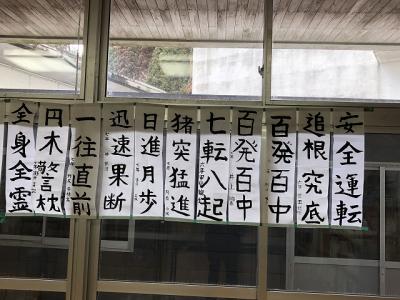 安全運転
追根究底
百発百中
百発百中
七転八起
猪突猛進
日進月歩
迅速果断
一往直前
円木警枕
全身全霊